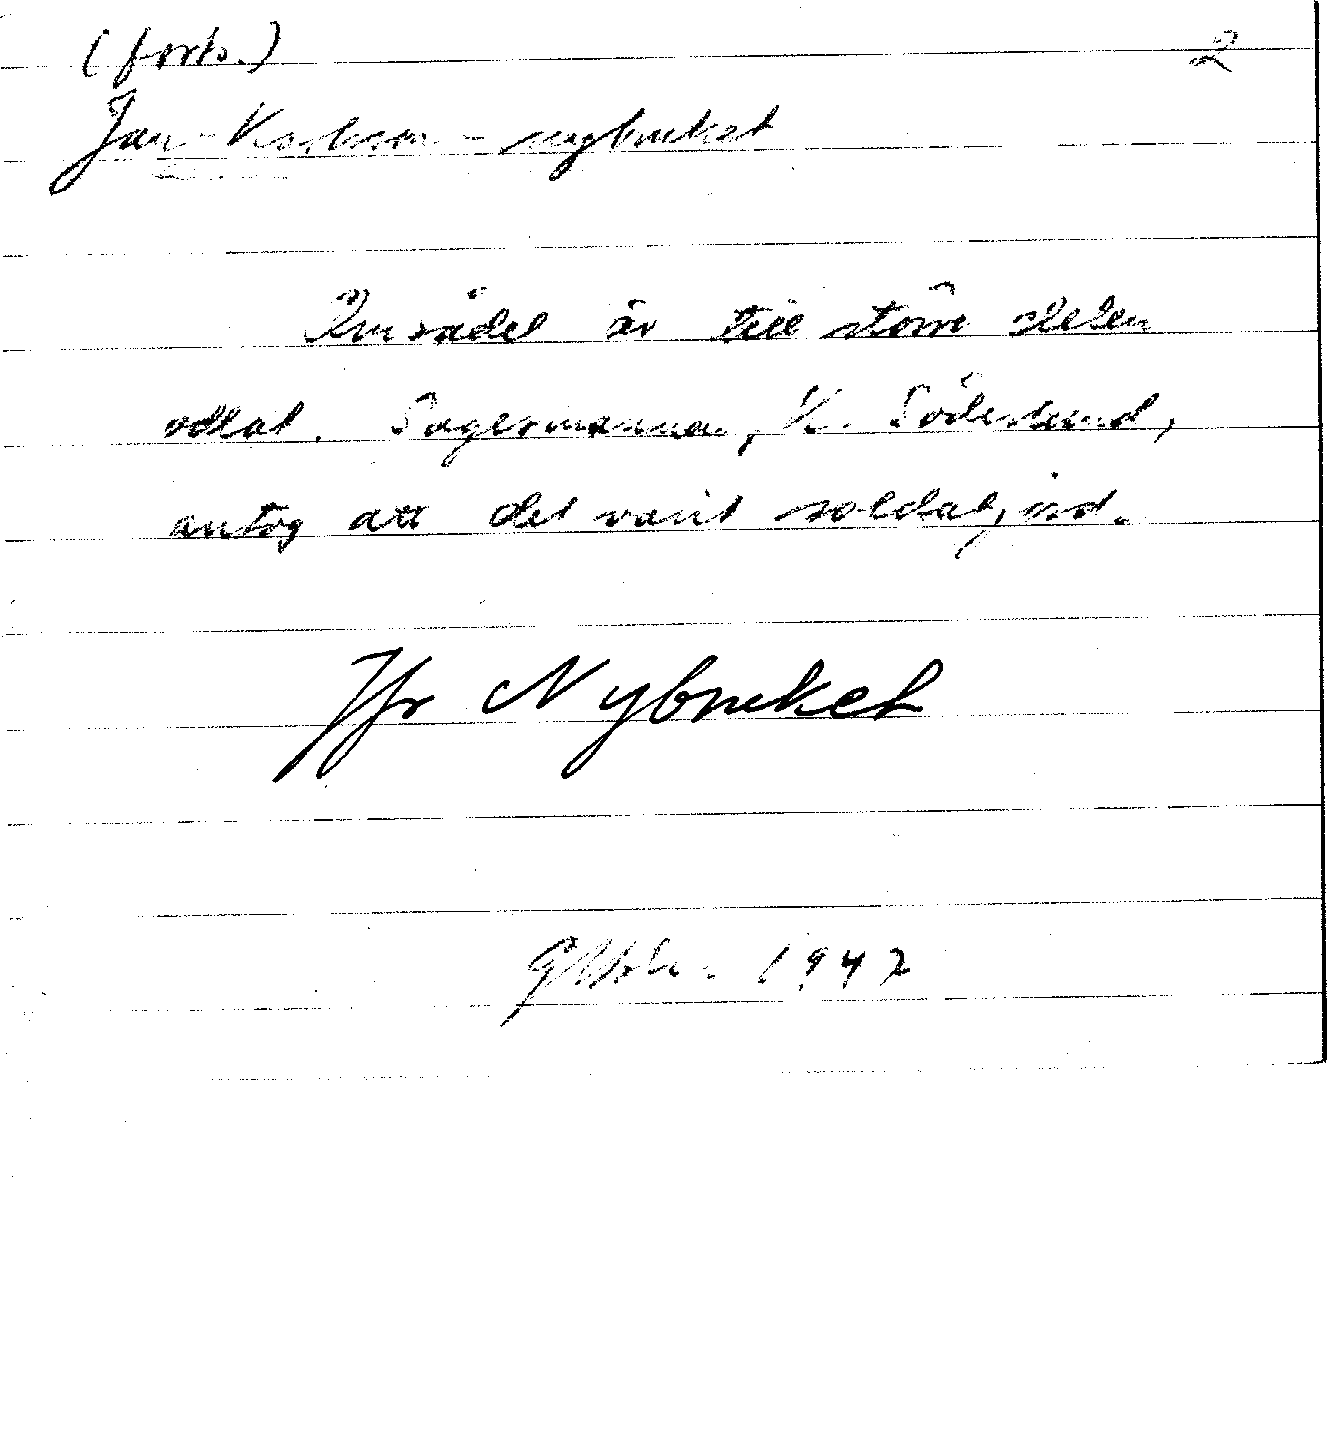 (forts.) 2
Jan-Karlsson-nybruket
Området är till större delen
odlat. Sagesmannen, K. Söderlund,
antog att det varit soldatjord.
Jfr Nybruket
1947